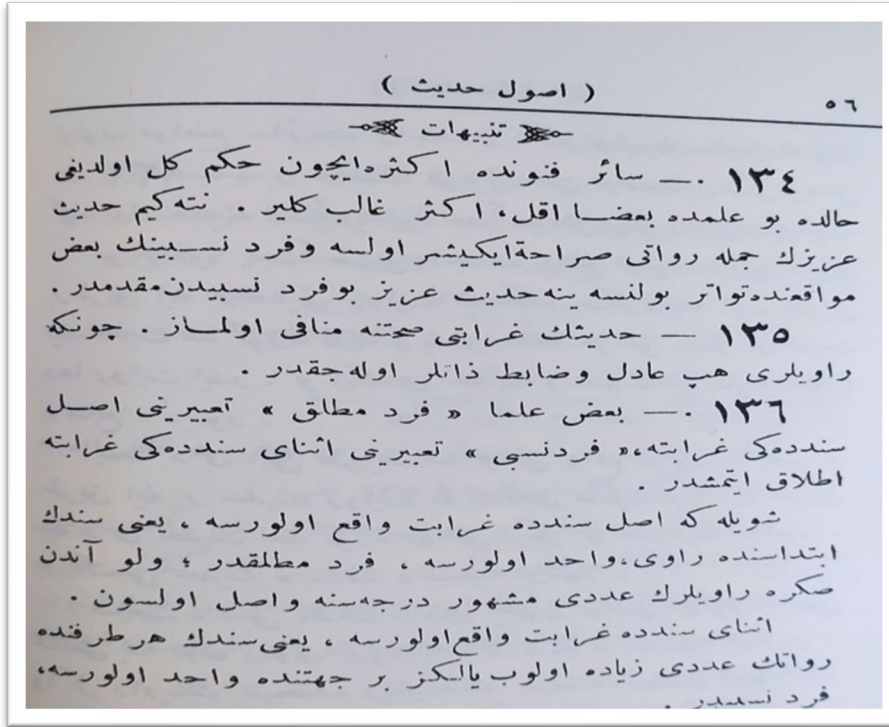 ٥٦ ( اصول حديث )
تنبيهات
١٣٤ — سائر فنونده اكثره ايچون حكم كل اولديغى
حالده بو علمده بعضا اقل، اكثر غالب كلير . نته كيم حديث
عزيزك جمله رواتى صراحة ايكيشر اولسه وفرد نسبينك بعض
مواقعنده تواتر بولنسه ينه حديث عزيز بو فرد نسبيدن مقدمدر .
١٣٥ — حديثك غرابتى صحتنه منافى اولماز . چونكه
راويلرى هپ عادل وضابط ذاتلر اوله جقدر .
١٣٦ — بعض علما « فرد مطلق » تعبيرينى اصل
سنددەكى غرابته، « فرد نسبى » تعبيرينى اثناى سنددەكى غرابته
اطلاق ايتمشدر .
شويله كه اصل سندده غرابت واقع اولورسه ، يعنى سندك
ابتداسنده راوى، واحد اولورسه ، فرد مطلقدر ؛ ولو آندن
صكره راويلرك عددى مشهور درجه سنه واصل اولسون .
اثناى سندده غرابت واقع اولورسه ، يعنى سندك هر طرفنده
رواتك عددى زياده اولوب يالكز بر جهتنده واحد اولورسه،
فرد نسبيدر .